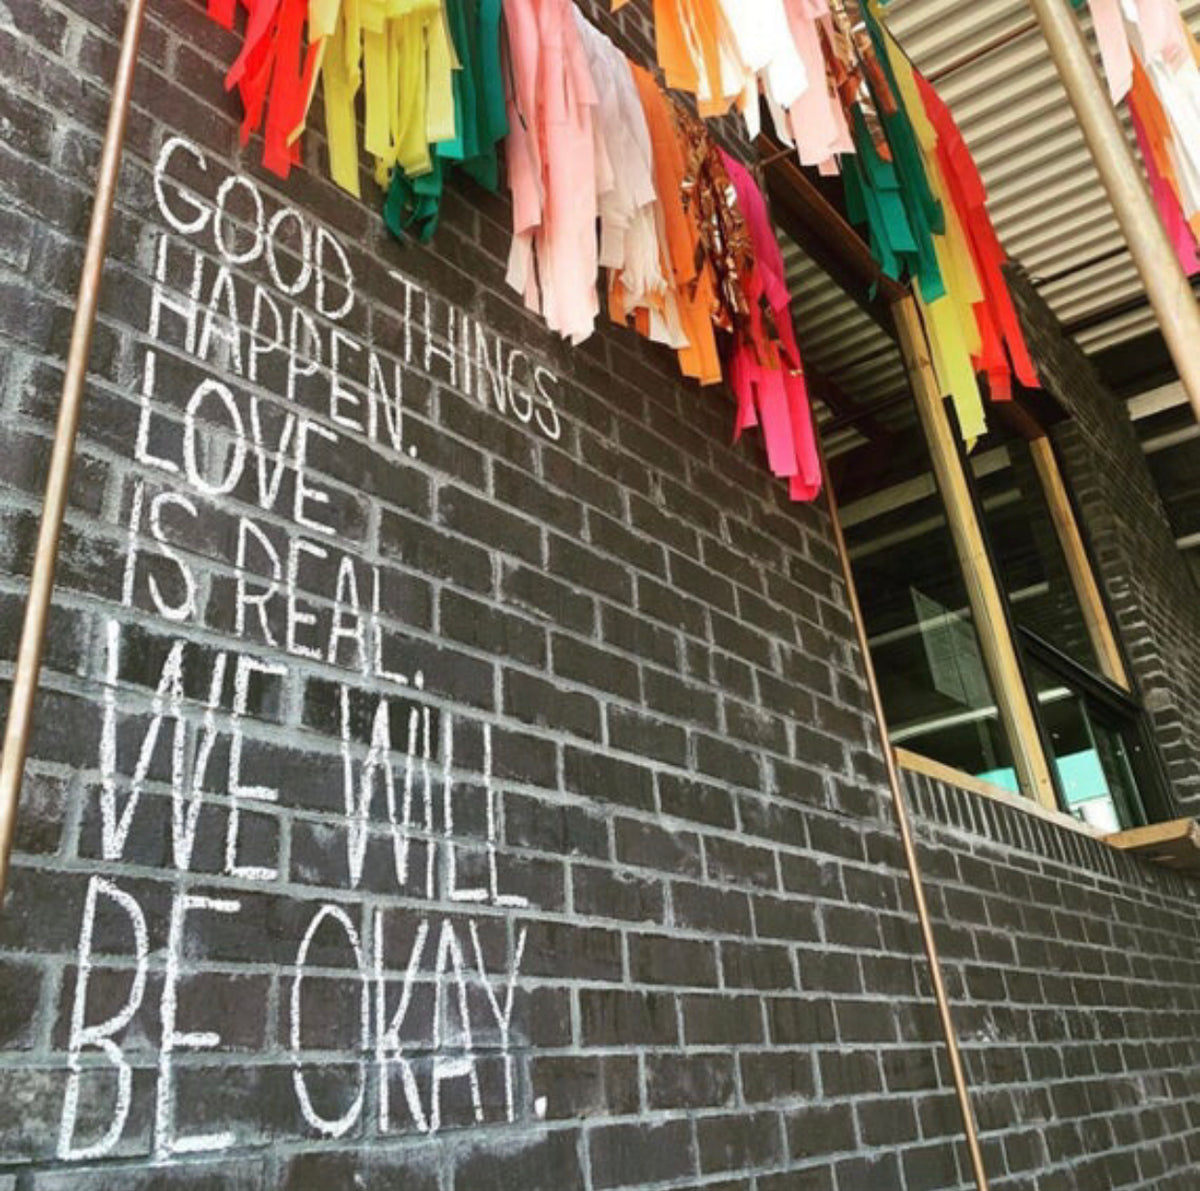 GOOD THINGS
HAPPEN.
LOVE
IS REAL.
WE WILL
BE OKAY.